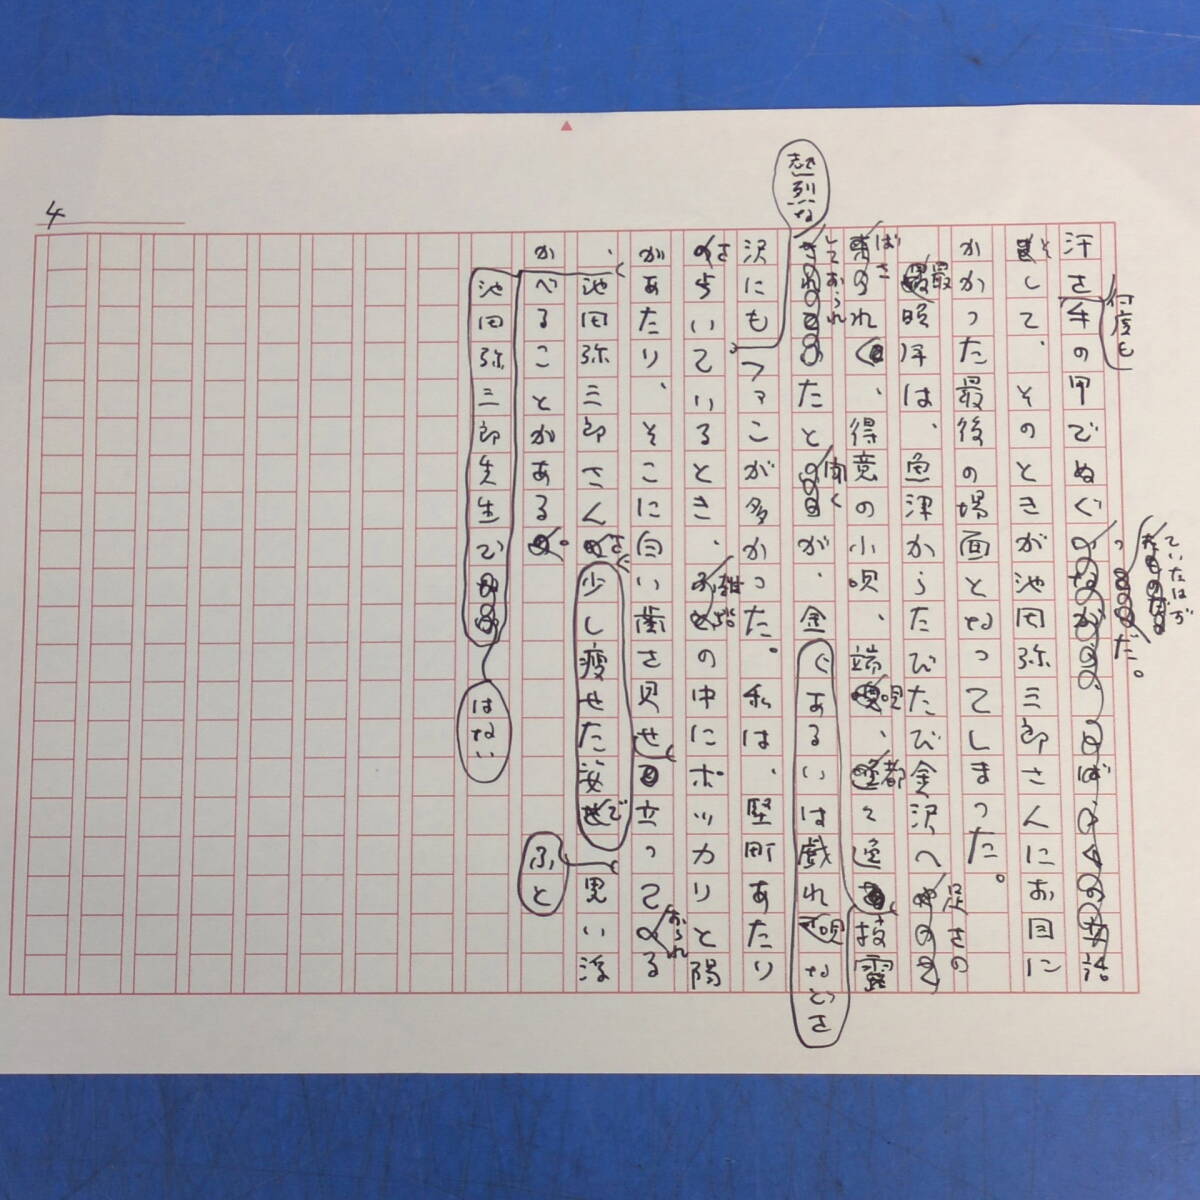 4
汗を手の甲でぬぐっ
ていたはずだ。
何度も
そして、そのときが池田弥三郎さんにお目に
かかった最後の場面となってしまった。
最晩年は、魚津からたびたび金沢へ足をの
ばされ、得意の小唄、端唄、都々逸
披露
あるいは戯れ唄などを
しておられたと聞くが、金
沢にもファンが多かった。私は、竪町あたり
熱烈な
を歩いているとき、雑踏の中にポッカリと陽
があたり、そこに白い歯を見せ立って
おられる
、池田弥三郎さん
少し痩せた姿で
思い浮
ふと
かべることがある。
池田弥三郎先生で
はない